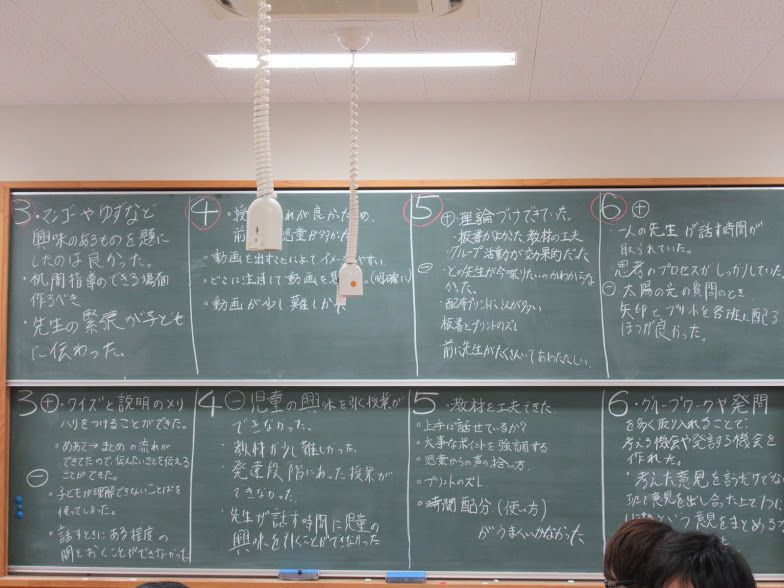 3 ・マンゴーやゆずなど
興味のあるものを題に
したのは良かった。
・机間指導のできる場面
作るべき
・先生の緊張が子ども
に伝わった。
4 ・授 れが良かったため、
前 児童が多かった
・動画を出すことによってイメージ やすい。
・どこに注目して動画を見 。(明確に)
・動画が少し難しかった
5 ⊕・理論づけできていた。
・板書がよかった 教材の工夫
・グループ活動が効果的だった
⊖ ・どの先生が今喋りたいのかわからな
かった。
・配布プリント 多い
板書とプリントのズレ
前に先生がたくさんいてあわただしい。
6 ⊕
・一人の先生が話す時間が
取られていた。
・思考のプロセスがしっかりしていた
⊖・太陽の光の質問のとき
矢印とプリントを各班に配る
ほうが良かった。
3 ⊕・クイズと説明のメリ
ハリをつけることができた。
・めあて→まとめの流れが
できてたので、伝えたいことを伝える
ことができた。
⊖ ・子どもが理解できないことばを
使ってしまった。
・話すときにある程度の
間をおくことができなかった
4 ⊖・児童の興味を引く授業が
できなかった。
・教材が少し難しかった。
・発達段階にあった授業が
できなかった。
・先生が話す時間に児童の
興味を引くことができなかった
5 ・教材を工夫できた。
・上手に話せているか?
・大事なポイントを強調する
・児童からの声の拾い方。
・プリントのズレ
・時間配分(使い方)
がうまくいかなかった
6 ・グループワークや発問
を多く取り入れることで、
考える機会や発言する機会を
作れた。
・考えた意見を言うだけでな
班で意見を出し合った上で1つに
という意見をまとめる